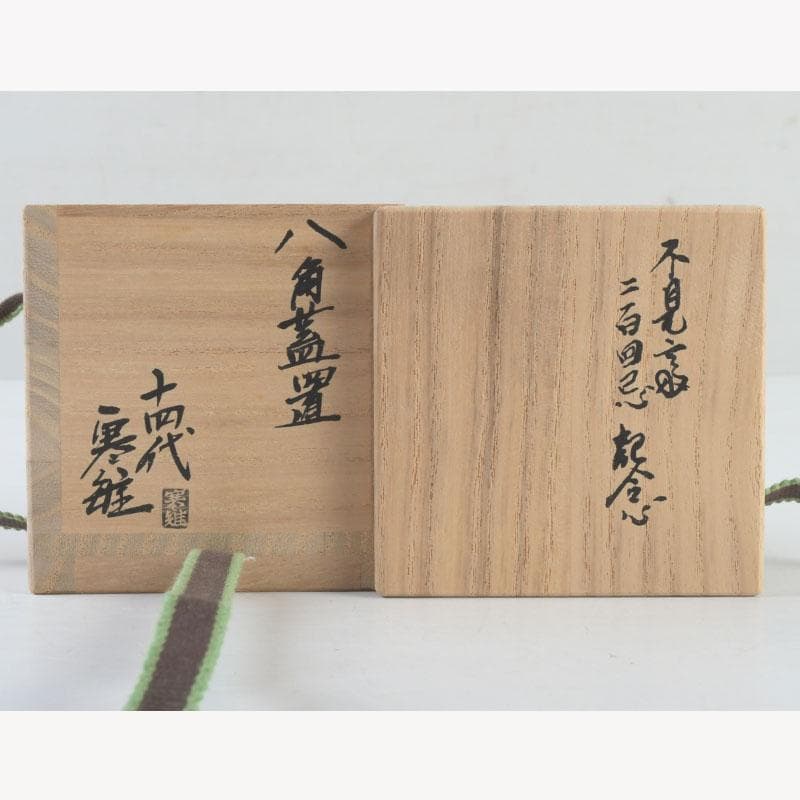 八角蓋置
十四代
寒雉
寒雉
不見斎
二百回忌
記念